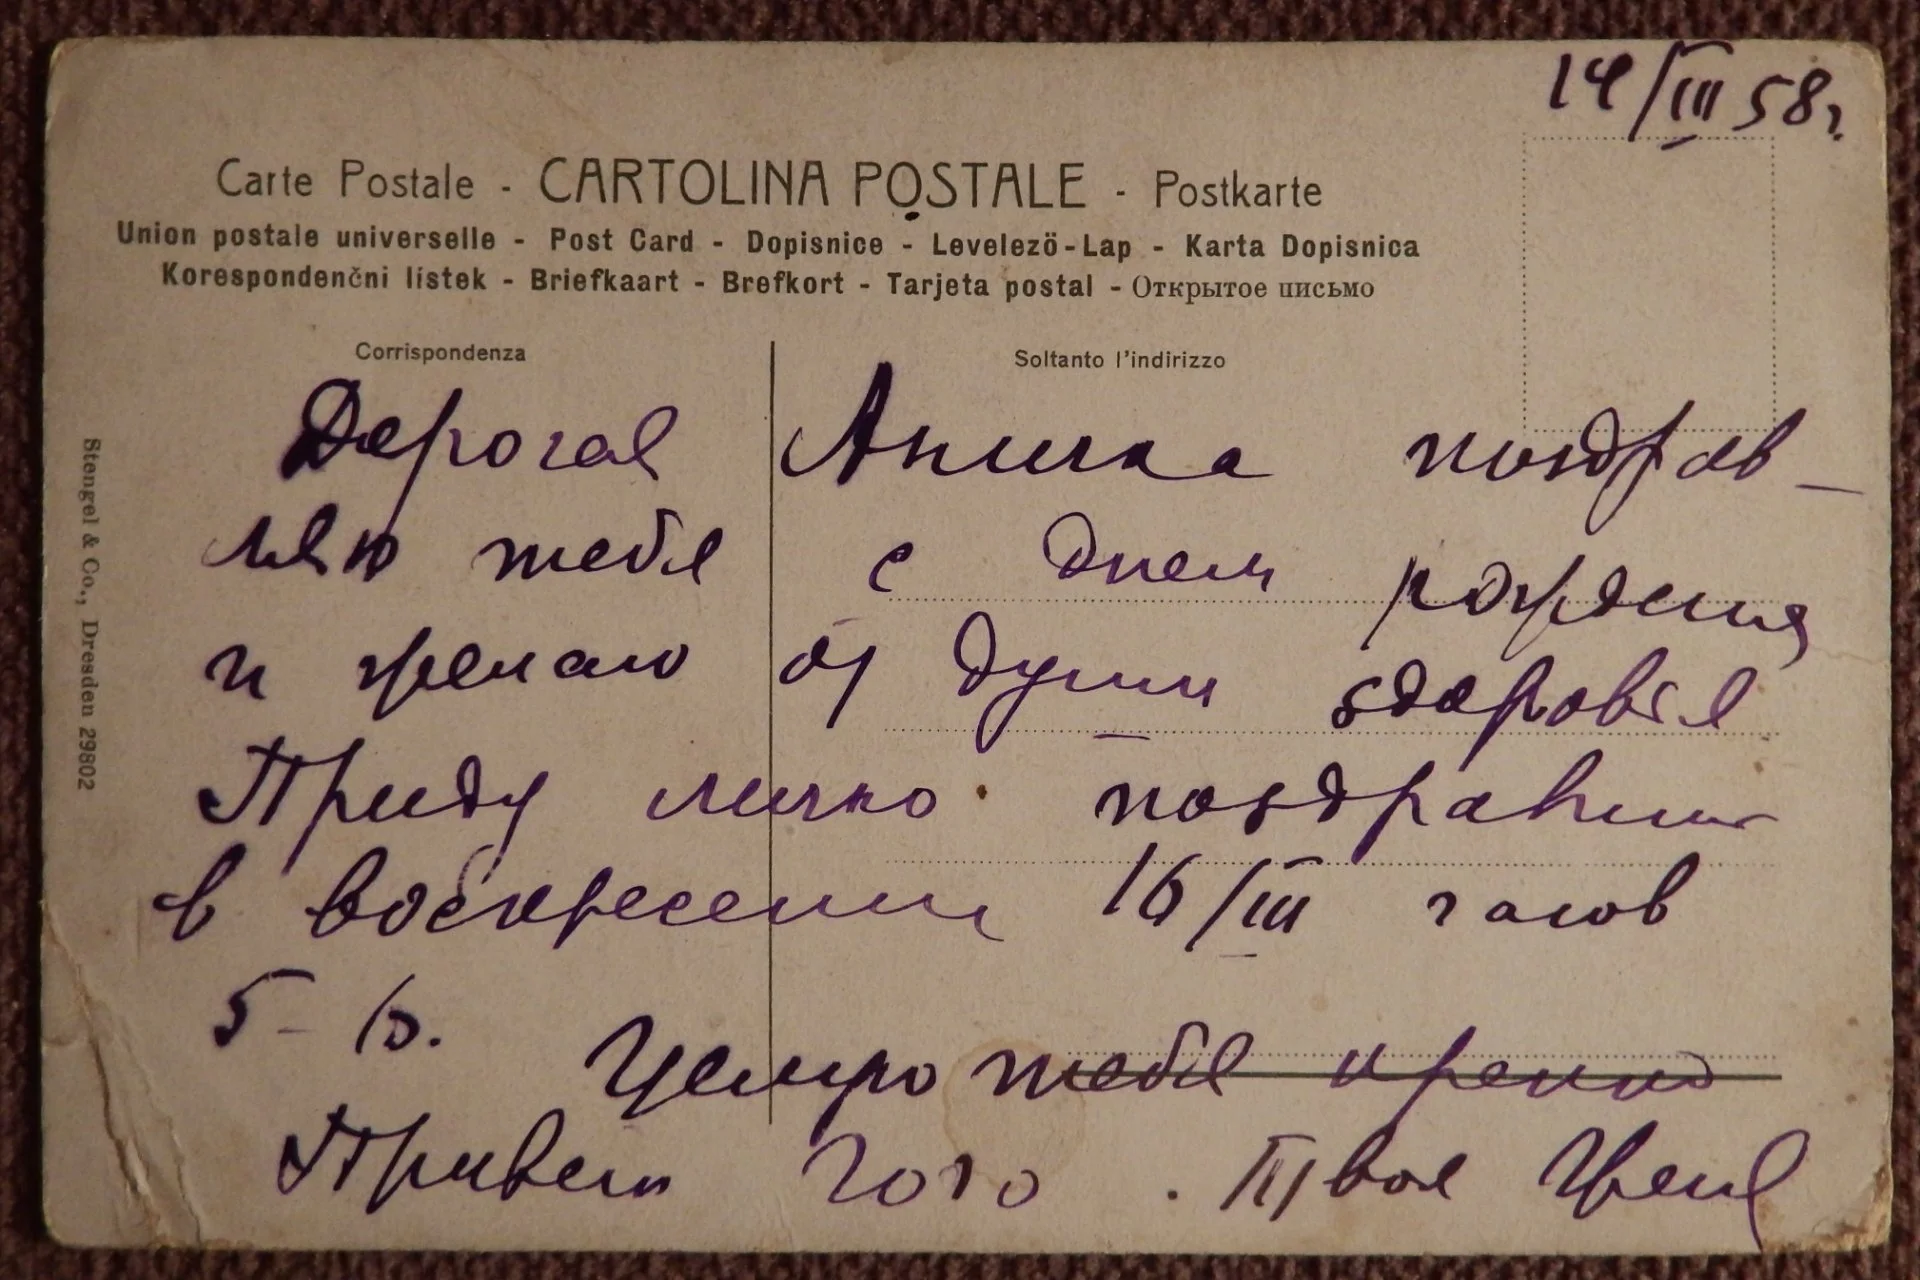 14/III 58г.
Carte Postale - CARTOLINA POSTALE - Postkarte
Union postale universelle - Post Card - Dopisnice - Levelezö-Lap - Karta Dopisnica
Korespondenčni listek - Briefkaart - Brefkort - Tarjeta postal - Открытое письмо
Corrispondenza
Soltanto l'indirizzo
Дорогая Аничка поздрав-
ляю тебя с днем рождения
и желаю от души здоровья
Приду лично поздравить
в воскресение 16/III часов
5-6.
Целую тебя крепко
Привет Гого. Твоя Женя
Stengel & Co., Dresden 29802